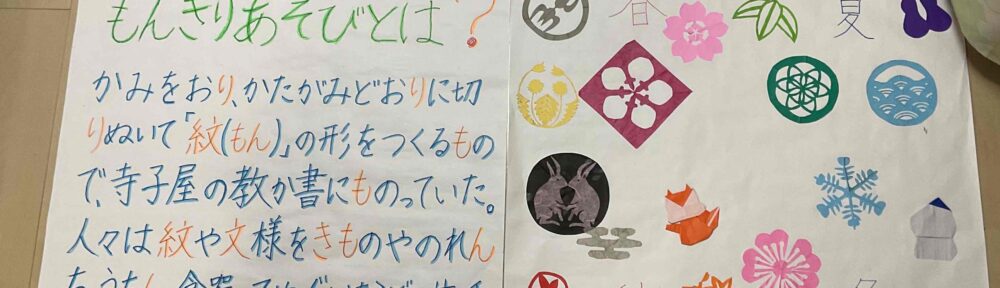 もんきりあそびとは?
かみをおり、かたがみどおりに切
りぬいて「紋(もん)」の形をつくるもの
で、寺子屋の教か書にものっていた。
人々は紋や文様をきものやのれん
春
夏